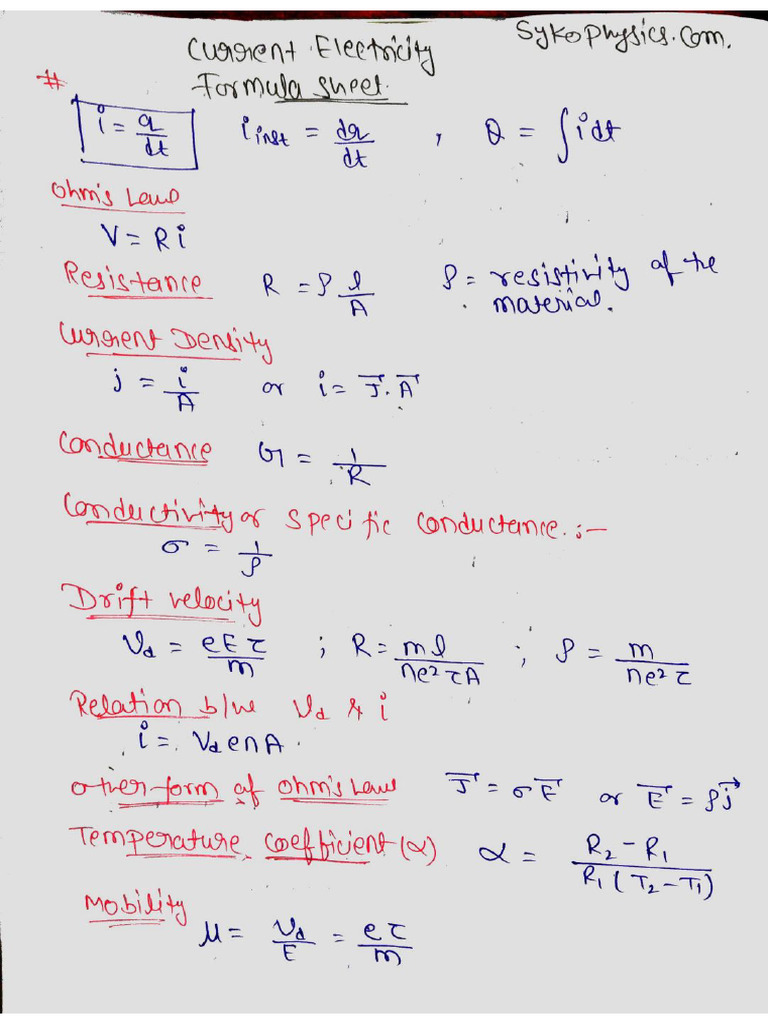 Current Electricity SykoPhysics.Com.
# Formula Sheet.
i = q/dt i inst = dq/dt , Q = ∫idt
Ohm's Law
V = Ri
Resistance R = ρ l/A ρ = resistivity of the
material.
Current Density
j = i/A or i = J⃗.A⃗
Conductance G = 1/R
Conductivity or Specific Conductance :-
σ = 1/ρ
Drift velocity
Vd = eEτ/m ; R = ml/ne²τA ; ρ = m/ne²τ
Relation b/w Vd & i
i = VdenA.
Other form of Ohm's Law J⃗ = σE⃗ or E⃗ = ρj⃗
Temperature Coefficient (α) α = R₂-R₁/R₁(T₂-T₁)
Mobility
μ = Vd/E = eτ/m